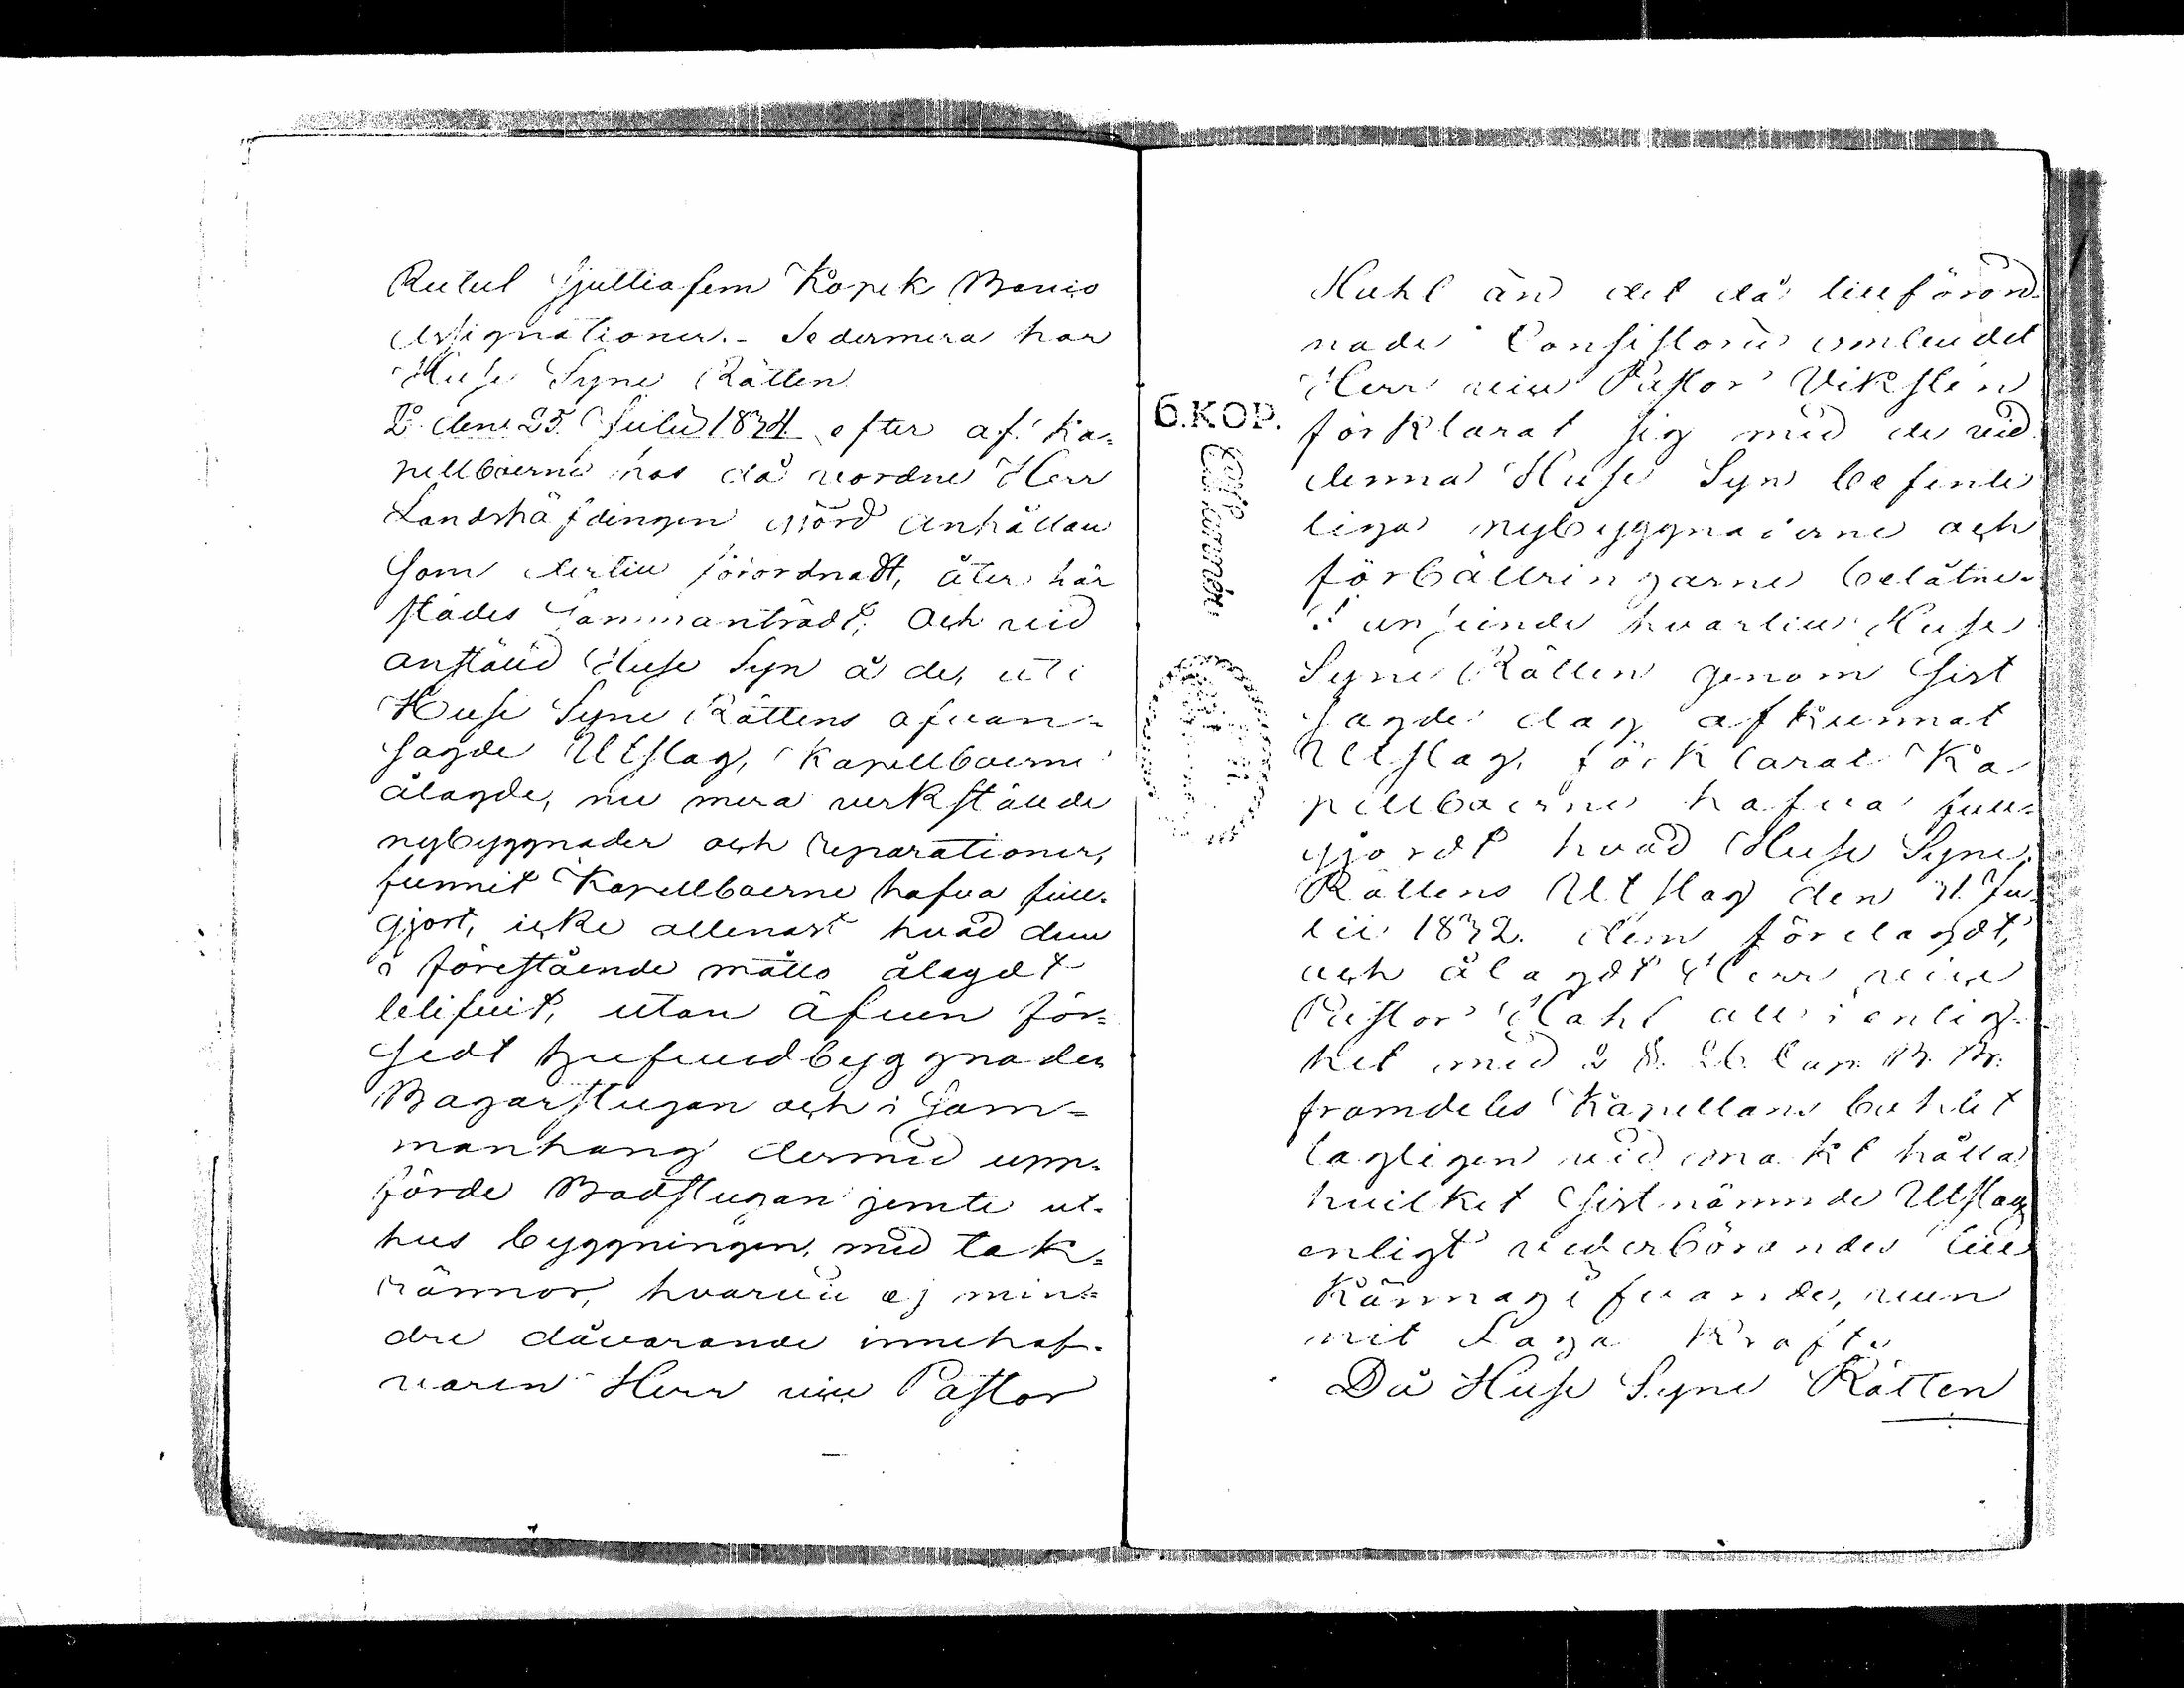 Rubel Sjuttiofem Kopek Banco
Assignationer. Sedermera har
Huse Syne Rätten
2o den 25 Julii 1834 efter af Ka=
pellboerne hos då vordne Herr
Landshöfdingen gjörd anhållan
som dertill förordnadt, åter här
städes sammanträdt; och vid
anstäld Huse Syn å de, uti
Huse Syne Rättens ofvan=
sagde Utslag, Kapellboerne
ålagde, nu mera verkstälde
nybyggnader och reparationer,
funnit Kapellboerne hafva full=
gjort, icke allenast hvad dem
i förestående måtto ålagdt
blifvit, utan äfven för=
sedt hufvudbyggnaden
Bagarstugan och i sam=
manhang dermed upp=
förde Badstugan jemte ut=
hus byggningen, med tak=
rännor, hvarvid ej min=
dre dåvarande innehaf=
varen Herr vice Pastor
Stahl än det då tillförord=
nade Consistorii ombudet
Herr vice Pastor Vikstén
förklarat sig med de vid
denna Huse Syn befinte
liga nybyggnaderne och
förbättringarne belåtne.
I anseende hvartill Huse
Syne Rätten genom sist
sagde dag afkunnat
Utslag, förklarat Ka=
pellboerne hafva full=
gjordt hvad Huse Syne
Rättens Utslag den 21 Ju=
lii 1832 dem förelagdt,
och ålagdt Herr vice
Pastor Stahl att i enlig=
het med 2 §. 26 Cap. B. B.
framdeles Kapellans bohlet
lagligen vid makt hålla
hvilket sistnämnde Utslag
enligt vederbörandes till
Kännagifvande, vun
nit Laga Kraft.
Då Huse Syne Rätten
6.KOP.